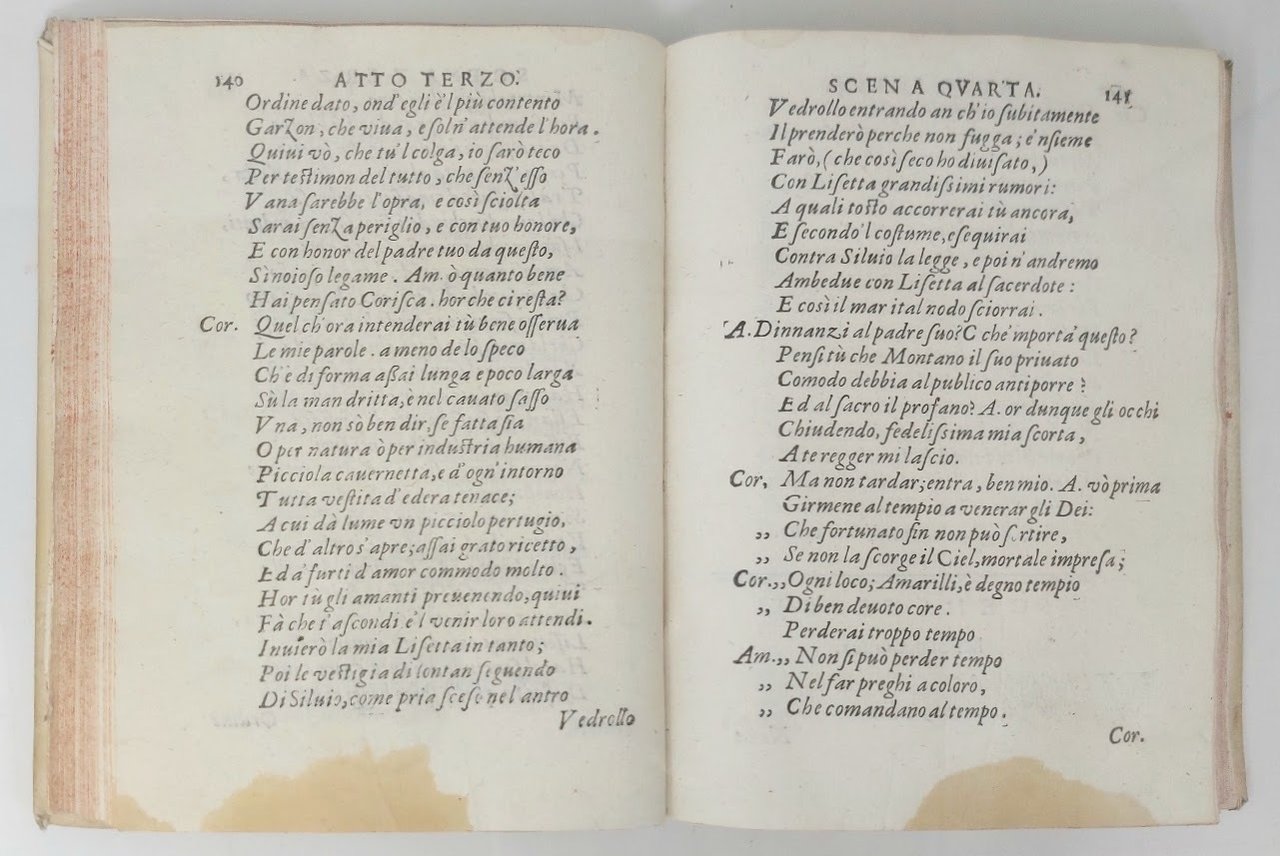 140 ATTO TERZO.
Ordine dato, ond'egli è'l più contento
Garzon, che viua, e sol n'attende l'hora.
Quiui vò, che tu'l colga, io sarò teco
Per testimon del tutto, che senz'esso
Vana sarebbe l'opra, e così sciolta
Sarai senza periglio, e con tuo honore,
E con honor del padre tuo da questo,
Sì noioso legame. Am. ò quanto bene
Hai pensato Corisca. hor che ci resta?
Cor. Quel ch'ora intenderai tù bene osserua
Le mie parole. a meno de lo speco
Ch'è di forma assai lunga e poco larga
Sù la man dritta, è nel cauato sasso
Vna, non sò ben dir, se fatta sia
O per natura ò per industria humana
Picciola cauernetta, e d'ogn'intorno
Tutta vestita d'edera tenace;
A cui dà lume vn picciolo pertugio,
Che d'altro s'apre; assai grato ricetto,
Ed a' furti d'amor commodo molto.
Hor tù gli amanti preuenendo, quiui
Fà che t'ascondi e'l venir loro attendi.
Inuierò la mia Lisetta in tanto;
Poi le vestigia di lontan seguendo
Di Siluio, come pria sceso nel antro
Vedrollo
SCENA QVARTA. 141
Vedrollo entrando anch'io subitamente
Il prenderò perche non fugga; e'nsieme
Farò, (che così seco ho diuisato,)
Con Lisetta grandissimi rumori:
A quali tosto accorrerai tù ancora,
E secondo'l costume, esequirai
Contra Siluio la legge, e poi n'andremo
Ambedue con Lisetta al sacerdote:
E così il marital nodo sciorrai.
A. Dinnanzi al padre suo? C che'mporta questo?
Pensi tù che Montano il suo priuato
Comodo debbia al publico antiporre?
Ed al sacro il profano? A. or dunque gli occhi
Chiudendo, fedelissima mia scorta,
A te regger mi lascio.
Cor. Ma non tardar; entra, ben mio. A. vò prima
Girmene al tempio a venerar gli Dei:
„ Che fortunato fin non può sortire,
„ Se non la scorge il Ciel, mortale impresa;
Cor. „ Ogni loco; Amarilli, è degno tempio
„ Di ben deuoto core.
Perderai troppo tempo
Am. „ Non si può perder tempo
„ Nel far preghi a coloro,
„ Che comandano al tempo.
Cor.